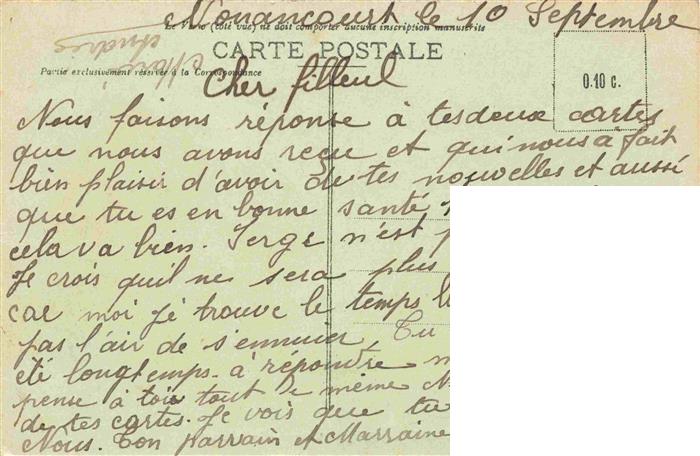 Nonancourt le 10 Septembre
Le Recto (côté vue) ne doit comporter aucune inscription manuscrite
CARTE POSTALE
Partie exclusivement réservée à la Correspondance
0.10 c.
Cher filleul
Nous faisons réponse à tes deux cartes
que nous avons reçu et qui nous a fait
bien plaisir d'avoir de tes nouvelles et aussi
que tu es en bonne santé
cela va bien. Serge n'est
Je crois qu'il ne sera plus
car moi je trouve le temps
pas l'air de s'ennuier, Tu
été longtemps à répondre
pense à toi tout le même
de tes cartes. Je vois que tu
Nous. Ton parrain et Marraine